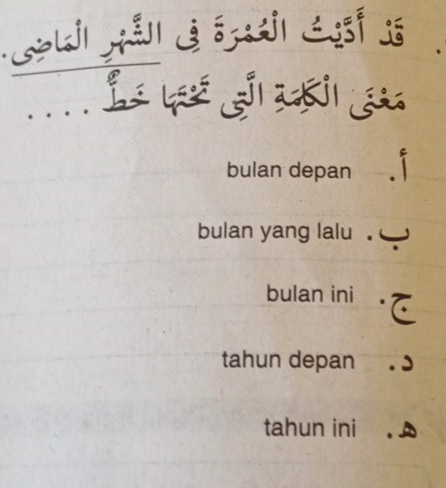 . قَدْ أَدَّيْتُ الْعُمْرَةَ فِى الشَّهْرِ الْمَاضِى.
مَعْنَى الْكَلِمَةِ الَّتِى تَحْتَهَا خَطٌّ . . . .
أ. bulan depan
ب. bulan yang lalu
ج. bulan ini
د. tahun depan
ه. tahun ini